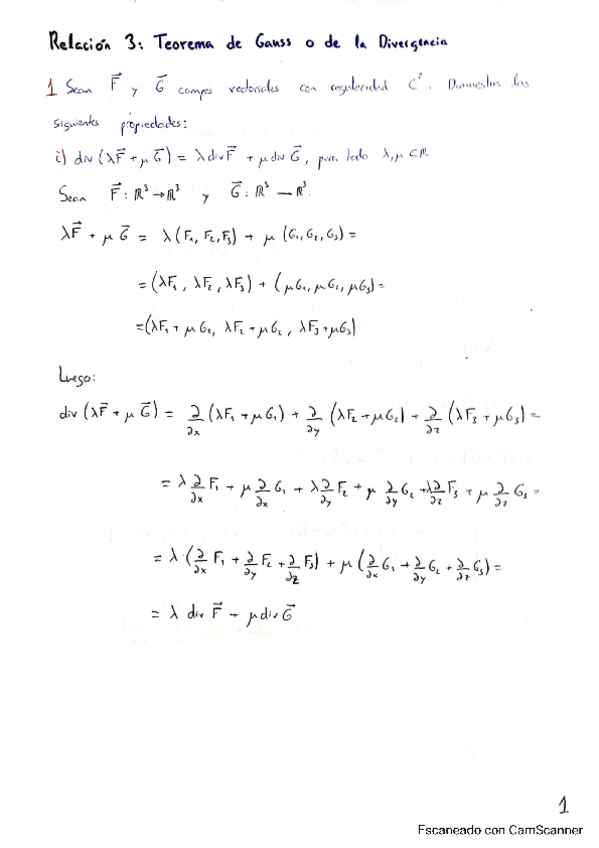 Relación 3: Teorema de Gauss o de la Divergencia
1 Sean F⃗ y G⃗ campos vectoriales con regularidad C². Demuestra las
siguientes propiedades:
i) div (λF⃗ + μG⃗) = λ div F⃗ + μ div G⃗, para todo λ, μ ∈ ℝ
Sean F⃗: ℝ³ → ℝ³ y G⃗: ℝ³ → ℝ³.
λF⃗ + μG⃗ = λ(F₁, F₂, F₃) + μ(G₁, G₂, G₃) =
= (λF₁, λF₂, λF₃) + (μG₁, μG₂, μG₃) =
= (λF₁ + μG₁, λF₂ + μG₂, λF₃ + μG₃)
Luego:
div (λF⃗ + μG⃗) = ∂/∂x (λF₁ + μG₁) + ∂/∂y (λF₂ + μG₂) + ∂/∂z (λF₃ + μG₃) =
= λ ∂/∂x F₁ + μ ∂/∂x G₁ + λ ∂/∂y F₂ + μ ∂/∂y G₂ + λ ∂/∂z F₃ + μ ∂/∂z G₃ =
= λ · (∂/∂x F₁ + ∂/∂y F₂ + ∂/∂z F₃) + μ (∂/∂x G₁ + ∂/∂y G₂ + ∂/∂z G₃) =
= λ div F⃗ + μ div G⃗
1
Escaneado con CamScanner